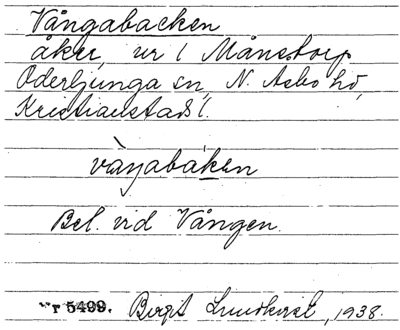 Vångabacken
åker, nr 1 Månstorp
Oderljunga sn, N. Åsbo hd,
Kristianstads l.
vàŋabaken
Bel. vid Vången.
nr 5499. Birgit Lundkvist, 1938.